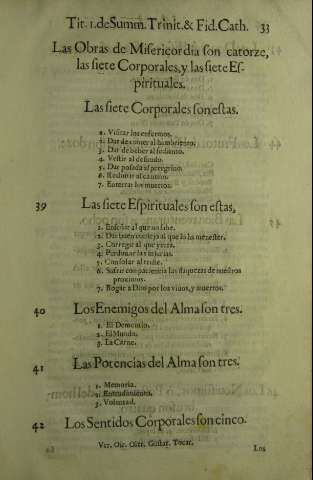 Tit. 1. de Summ. Trinit. & Fid. Cath. 33
Las Obras de Misericordia son catorze,
las siete Corporales, y las siete Es-
pirituales.
Las siete Corporales son estas.
1. Visitar los enfermos.
2. Dar de comer al hambriento.
3. Dar de beber al sediento.
4. Vestir al desnudo.
5. Dar posada al peregrino.
6. Redimir al cautivo.
7. Enterrar los muertos.
39 Las siete Espirituales son estas,
1. Enseñar al que no sabe.
2. Dar buen consejo al que lo ha menester.
3. Corregir al que yerra.
4. Perdonar las injurias.
5. Consolar al triste.
6. Sufrir con paciencia las flaquezas de nuestros
proximos.
7. Rogar a Dios por los vivos, y muertos.
40 Los Enemigos del Alma son tres.
1. El Demonio.
2. El Mundo.
3. La Carne.
41 Las Potencias del Alma son tres.
1. Memoria.
2. Entendimiento.
3. Voluntad.
42 Los Sentidos Corporales son cinco.
Ver. Oir. Oler. Gustar. Tocar.
Los